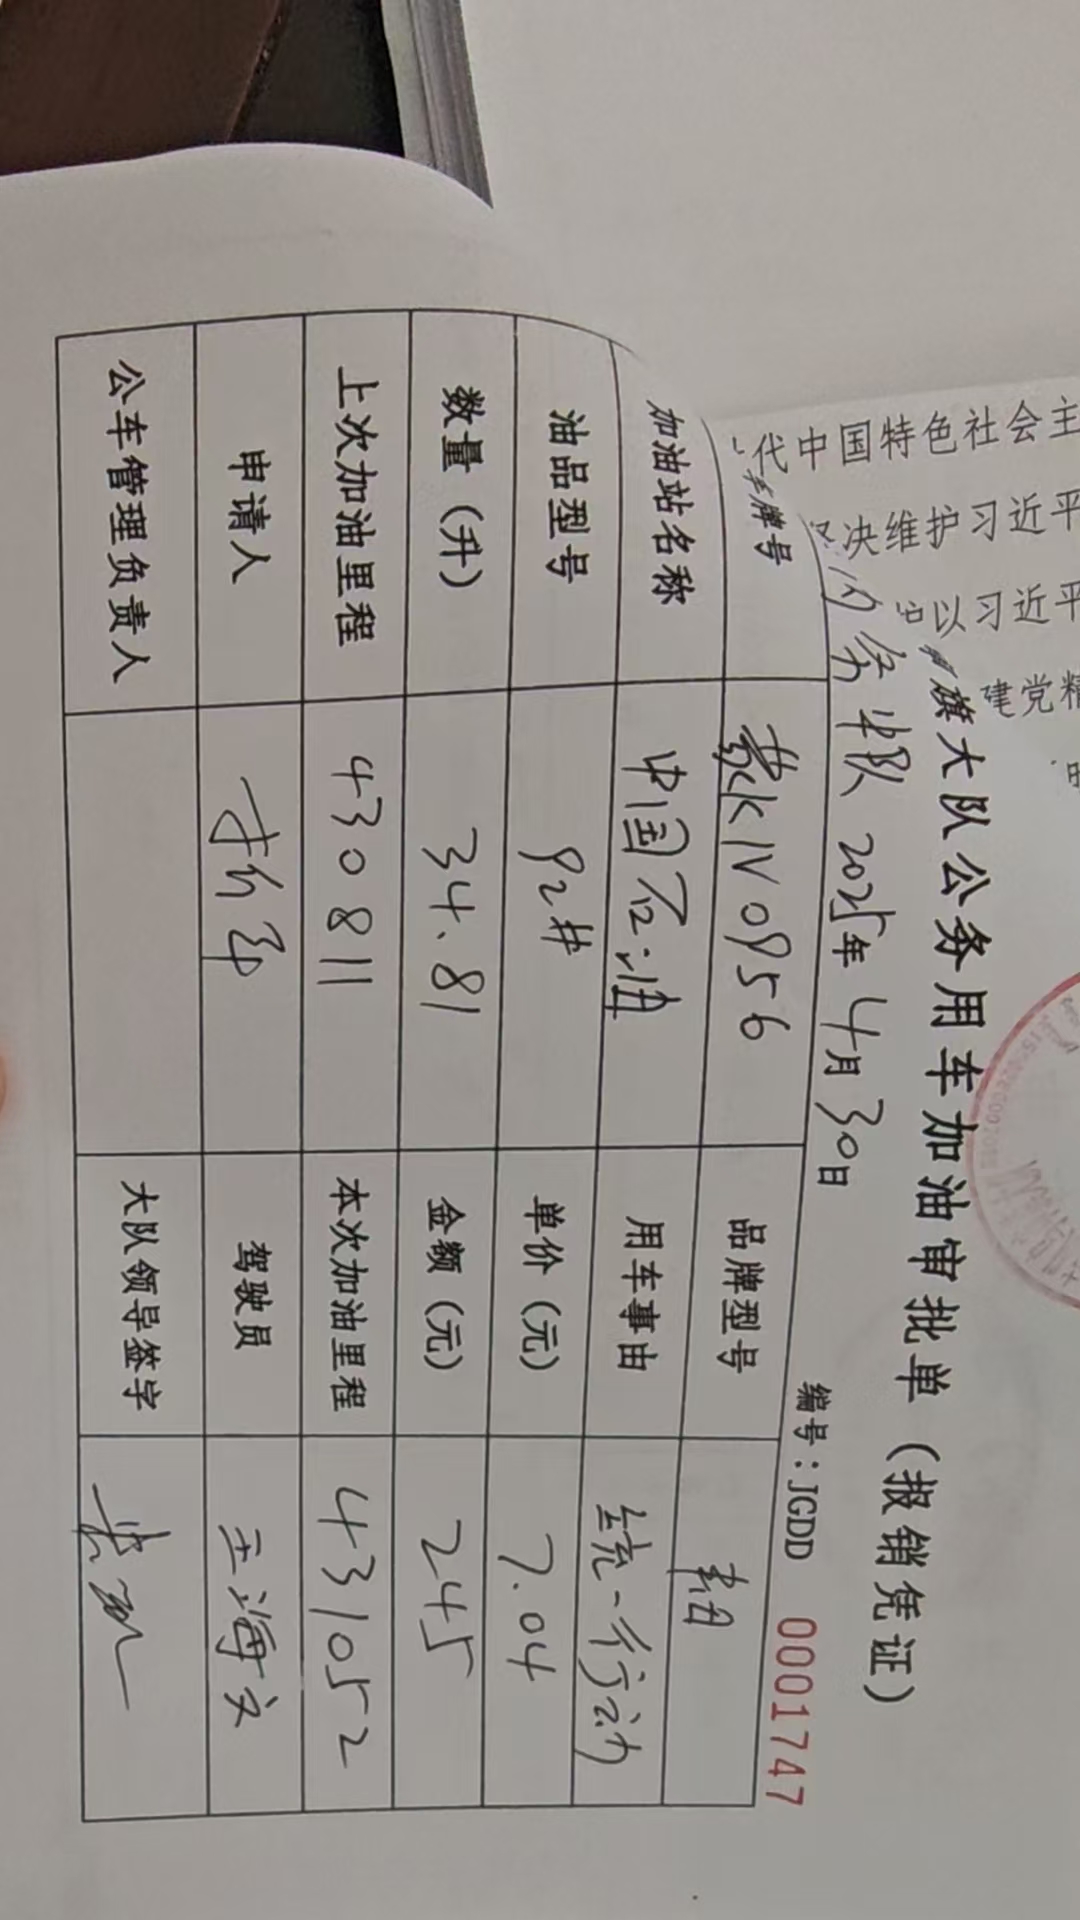 代中国特色社会主
坚决维护习近平
以习近平
建党精
旗大队公务用车加油审批单（报销凭证）
中队 2025年 4月 30日
编号：JGDD 0001747
车牌号 蒙K1V0956 品牌型号
加油站名称 中国石油 用车事由 统一行动
油品型号 92# 单价（元） 7.04
数量（升） 34.81 金额（元） 245
上次加油里程 430811 本次加油里程 431052
申请人 驾驶员 王海文
公车管理负责人 大队领导签字